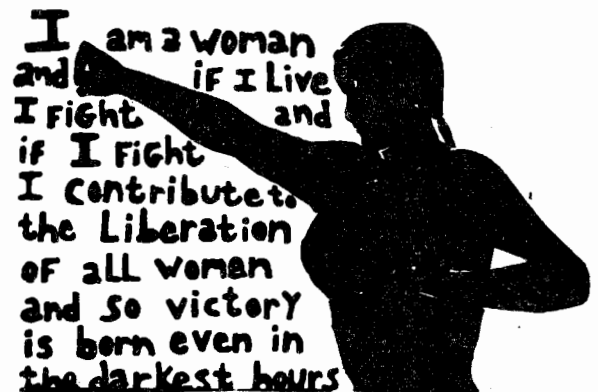 I am a woman
and if I Live
I FiGht and
if I FiGht
I contribute to
the Liberation
oF aLL woman
and so victorY
is born even in
the darkest hours